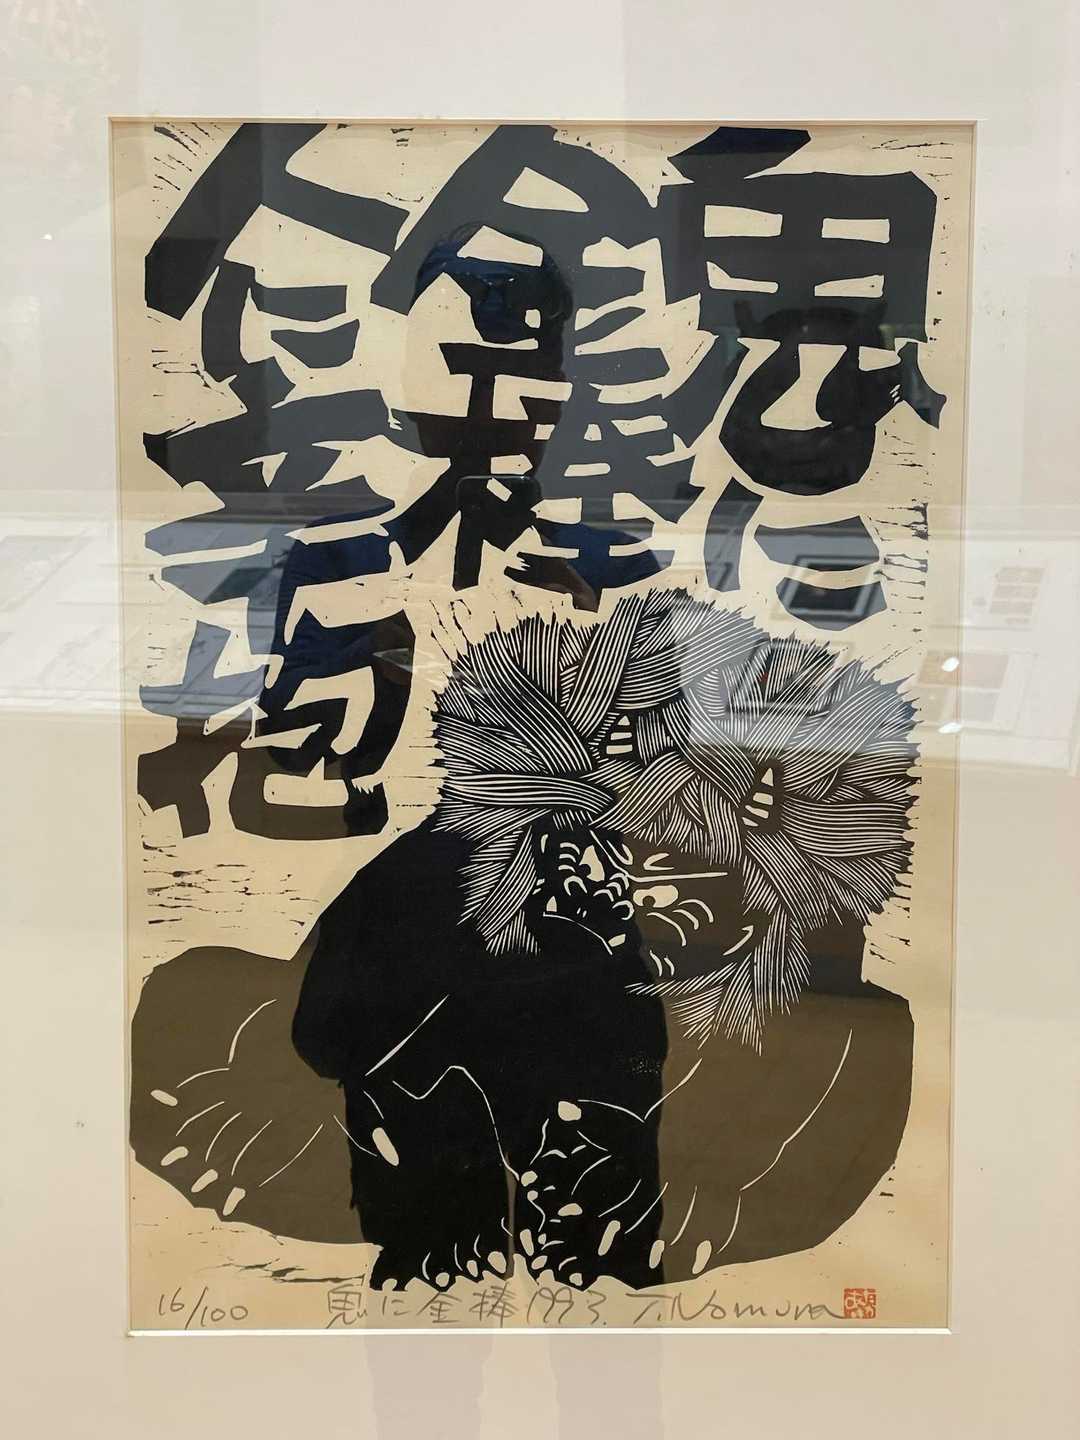 鬼に
金棒
人に辛抱
16/100 鬼に金棒 1993. T. Nomura